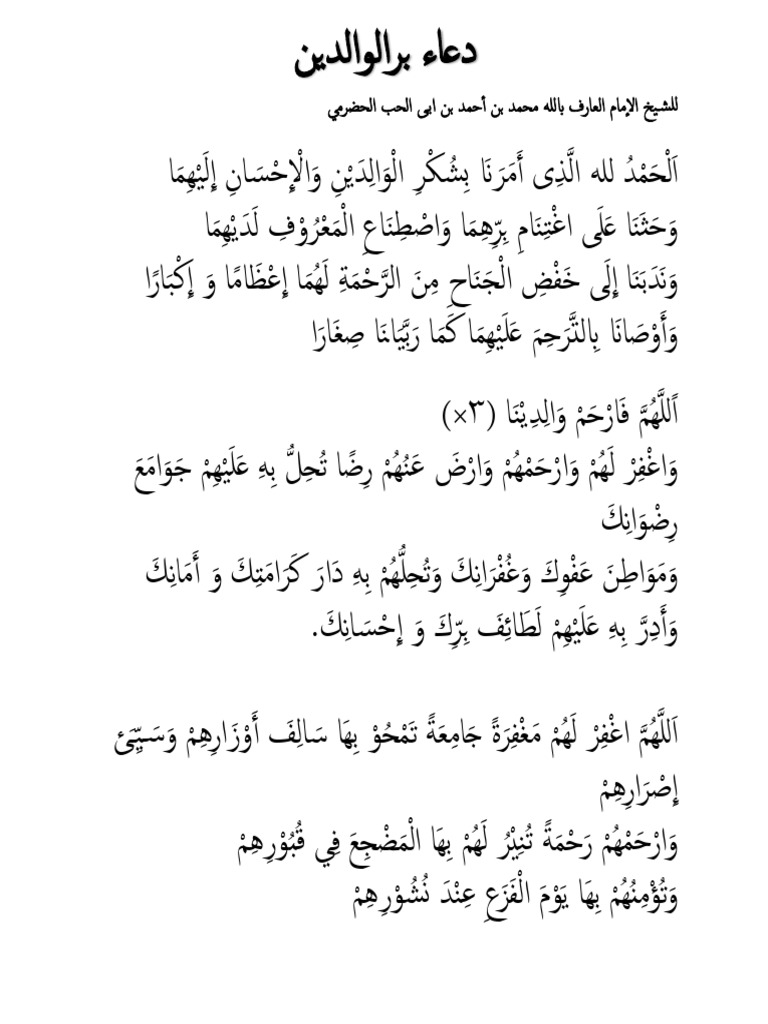 دعاء برالوالدين
للشيخ الإمام العارف بالله محمد بن أحمد بن ابى الحب الحضرمي
اَلْحَمْدُ لله الَّذِى أَمَرَنَا بِشُكْرِ الْوَالِدَيْنِ وَالْإِحْسَانِ إِلَيْهِمَا
وَحَثَنَا عَلَى اغْتِنَامِ بِرِّهِمَا وَاصْطِنَاعِ الْمَعْرُوْفِ لَدَيْهِمَا
وَنَدَبَنَا إِلَى خَفْضِ الْجَنَاحِ مِنَ الرَّحْمَةِ لَهُمَا إِعْظَامًا وَ إِكْبَارًا
وَأَوْصَانَا بِالتَّرَحِمَ عَلَيْهِمَا كَمَا رَبَّيَانَا صِغَارَا
اَللَّهُمَّ فَارْحَمْ وَالِدِيْنَا (٣×)
وَاغْفِرْ لَهُمْ وَارْحَمْهُمْ وَارْضَ عَنْهُمْ رِضًا تُحِلُّ بِهِ عَلَيْهِمْ جَوَامَعَ
رِضْوَانِكَ
وَمَوَاطِنَ عَفْوِكَ وَغُفْرَانِكَ وَتُحِلُّهُمْ بِهِ دَارَ كَرَامَتِكَ وَ أَمَانِكَ
وَأَدِرَّ بِهِ عَلَيْهِمْ لَطَائِفَ بِرِّكَ وَ إِحْسَانِكَ.
اَللَّهُمَّ اغْفِرْ لَهُمْ مَغْفِرَةً جَامِعَةً تَمْحُوْ بِهَا سَالِفَ أَوْزَارِهِمْ وَسَيِّئَ
إِصْرَارِهِمْ
وَارْحَمْهُمْ رَحْمَةً تُنِيْرُ لَهُمْ بِهَا الْمَضْجِعَ فِي قُبُوْرِهِمْ
وَتُؤْمِنُهُمْ بِهَا يَوْمَ الْفَزَعِ عِنْدَ نُشُوْرِهِمْ